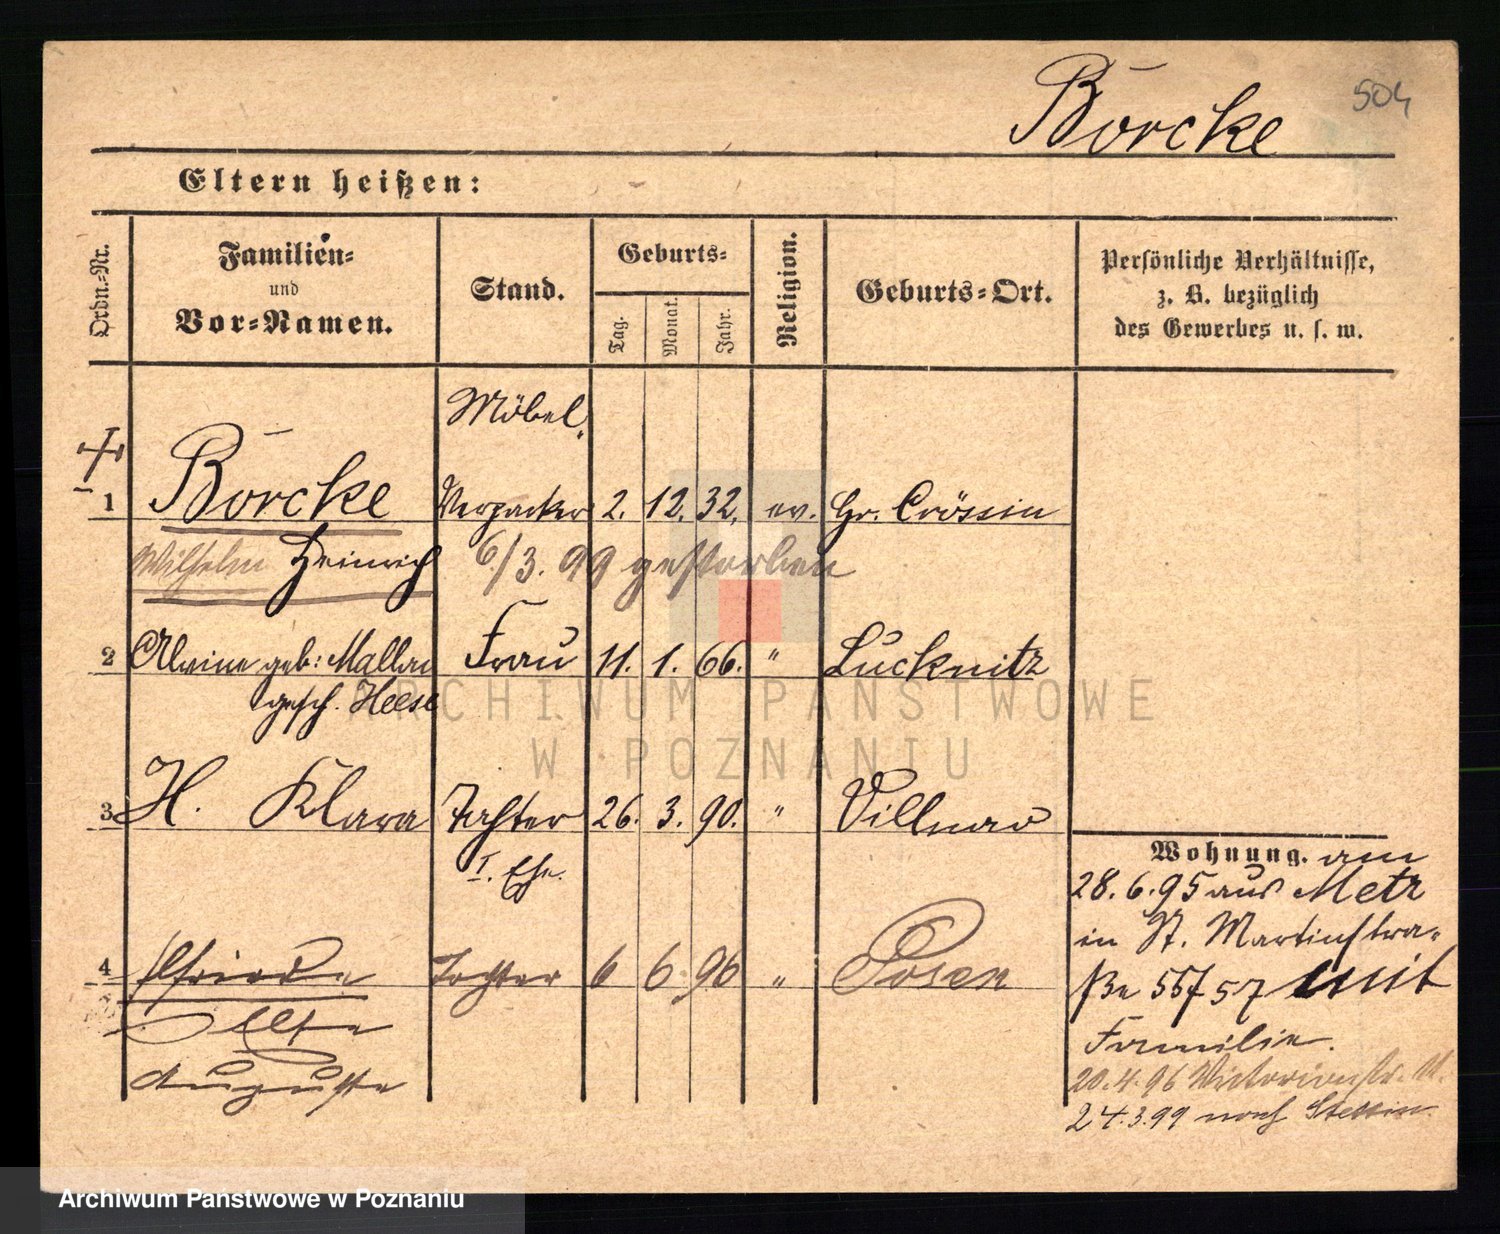 504
Borcke
Eltern heißen:
Ordn.-Nr.
Familien-
und
Vor-Namen.
Stand.
Geburts-
Tag.
Monat.
Jahr.
Religion.
Geburts-Ort.
Persönliche Verhältnisse,
z. B. bezüglich
des Gewerbes u. s. w.
Möbel
1 Borcke Verpacker 2. 12. 32. ev. Gr. Crössin
Wilhelm Heinrich 6/3. 99 gestorben
2 Alwine geb: Mallau Frau 11. 1. 66. " Lucknitz
gesch. Heese
3 H. Klara Tochter 26. 3. 90. " Villnow
I. Ehe.
Wohnung. am
28. 6. 95 aus Metz
in St. Martinstra-
4 Elfriede Tochter 6 6. 96 " Posen
ße 56/57 mit
Else
Familie.
Auguste
20. 4. 96 Victoriastr.
24. 3. 99 nach Stettin
ARCHIWUM PAŃSTWOWE
W POZNANIU
Archiwum Państwowe w Poznaniu